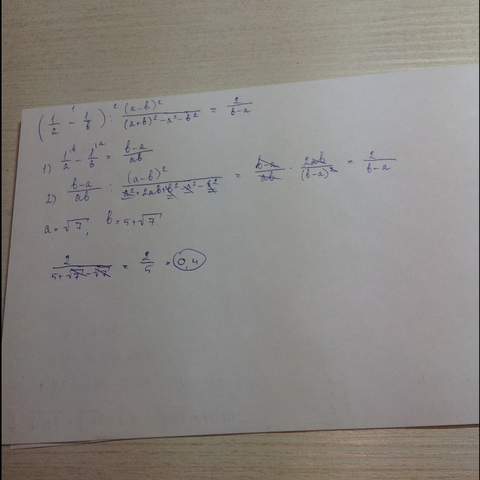 (1/a - 1/b) : (a-b)²/((a+b)²-a²-b²) = 2/(b-a)
1) 1/a - 1/b = (b-a)/ab
2) (b-a)/ab : (a-b)²/(a²+2ab+b²-a²-b²) = (b-a)/ab · 2ab/(b-a)² = 2/(b-a)
a=√7, b=5+√7
2/(5+√7-√7) = 2/5 = 0,4